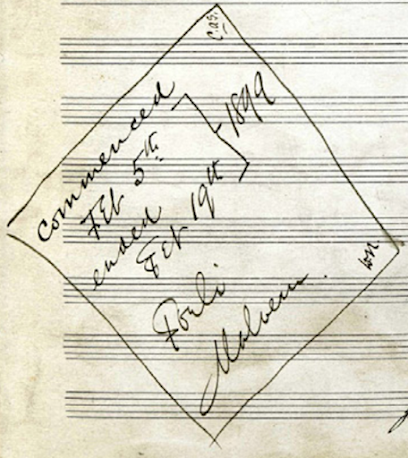 commenced
Feb 5th
ended
Feb 19th
1899
Forli
Malvern.